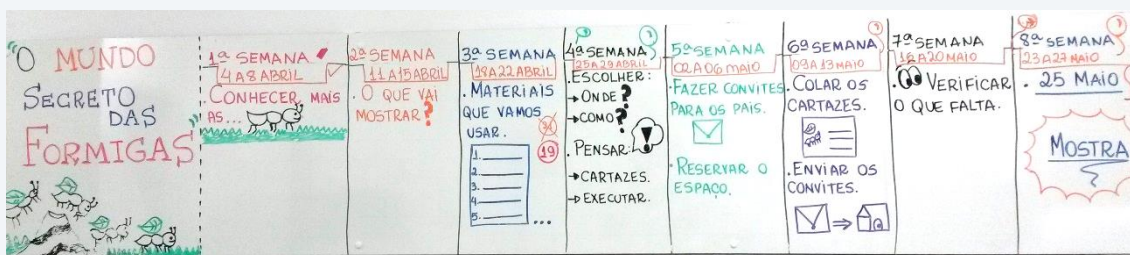 "O MUNDO
SECRETO
DAS
FORMIGAS"
1ª SEMANA
4 A 8 ABRIL
.CONHECER MAIS
AS...
2ª SEMANA
11 A 15 ABRIL
. O QUE VAI
MOSTRAR?
3ª SEMANA
18 A 22 ABRIL
.MATERIAIS
QUE VAMOS
USAR.
19
1.
2.
3.
4.
5.
...
4ª SEMANA
25 A 29 ABRIL
.ESCOLHER:
→ONDE?
→COMO?
.PENSAR:
→CARTAZES.
→EXECUTAR.
5ª SEMANA
02 A 06 MAIO
.FAZER CONVITES
PARA OS PAIS.
.RESERVAR O
ESPAÇO.
6ª SEMANA
09 A 13 MAIO
.COLAR OS
CARTAZES.
.ENVIAR OS
CONVITES.
7ª SEMANA
16 A 20 MAIO
. VERIFICAR
O QUE FALTA.
8ª SEMANA
23 A 27 MAIO
. 25 MAIO
MOSTRA